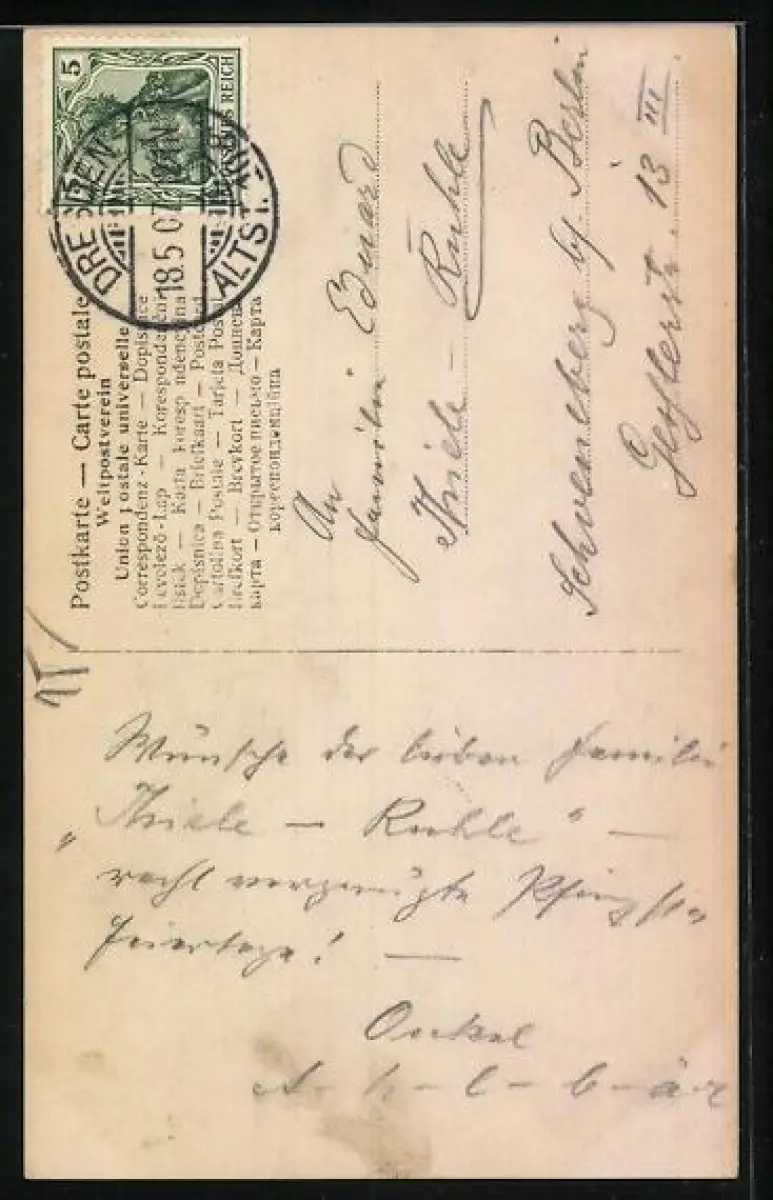 5
DEUTSCHES REICH
DRESDEN
18.5.07
ALTST.
Postkarte — Carte postale
Weltpostverein
Union postale universelle
Correspondenz-Karte — Dopisnice
Levelező-Lap — Korespondenční
lístek — Karta korespondencyjna
Dopisnica — Briefkaart — Postcard
Cartolina Postale — Tarjeta Postal
Brefkort — Brevkort — Дописна
карта — Открытое письмо — Карта
корреспонденційна
An
Familie Eduard
Thiele - Ruhle
Schoeneberg b/ Berlin
13 III
Wünsche der lieben Familie
„Thiele — Ruhle" —
recht vergnügte Pfingst=
feiertage! —
Onkel